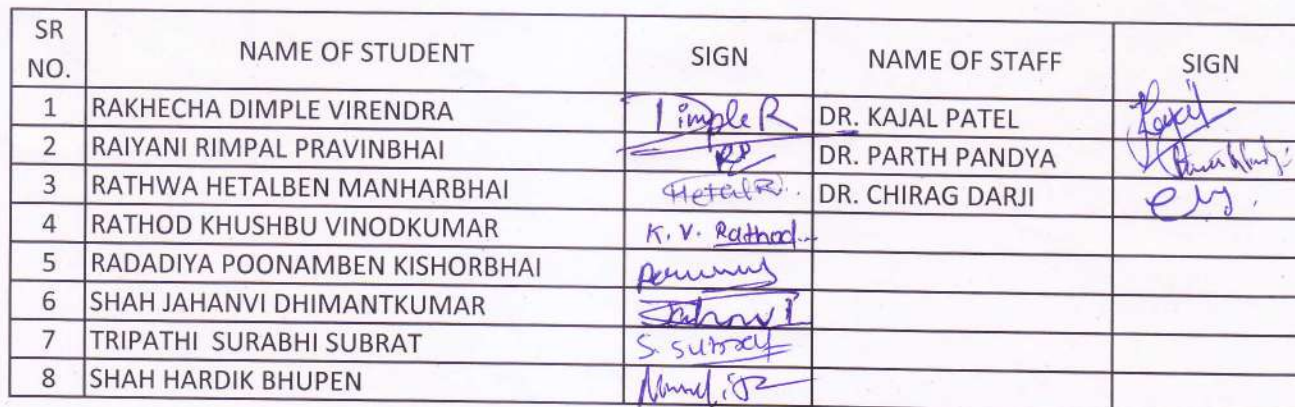 SR NO. NAME OF STUDENT SIGN NAME OF STAFF SIGN
1 RAKHECHA DIMPLE VIRENDRA Dimple R DR. KAJAL PATEL
2 RAIYANI RIMPAL PRAVINBHAI DR. PARTH PANDYA
3 RATHWA HETALBEN MANHARBHAI Hetal R. DR. CHIRAG DARJI
4 RATHOD KHUSHBU VINODKUMAR K. V. Rathod
5 RADADIYA POONAMBEN KISHORBHAI
6 SHAH JAHANVI DHIMANTKUMAR Jahnvi
7 TRIPATHI SURABHI SUBRAT
8 SHAH HARDIK BHUPEN